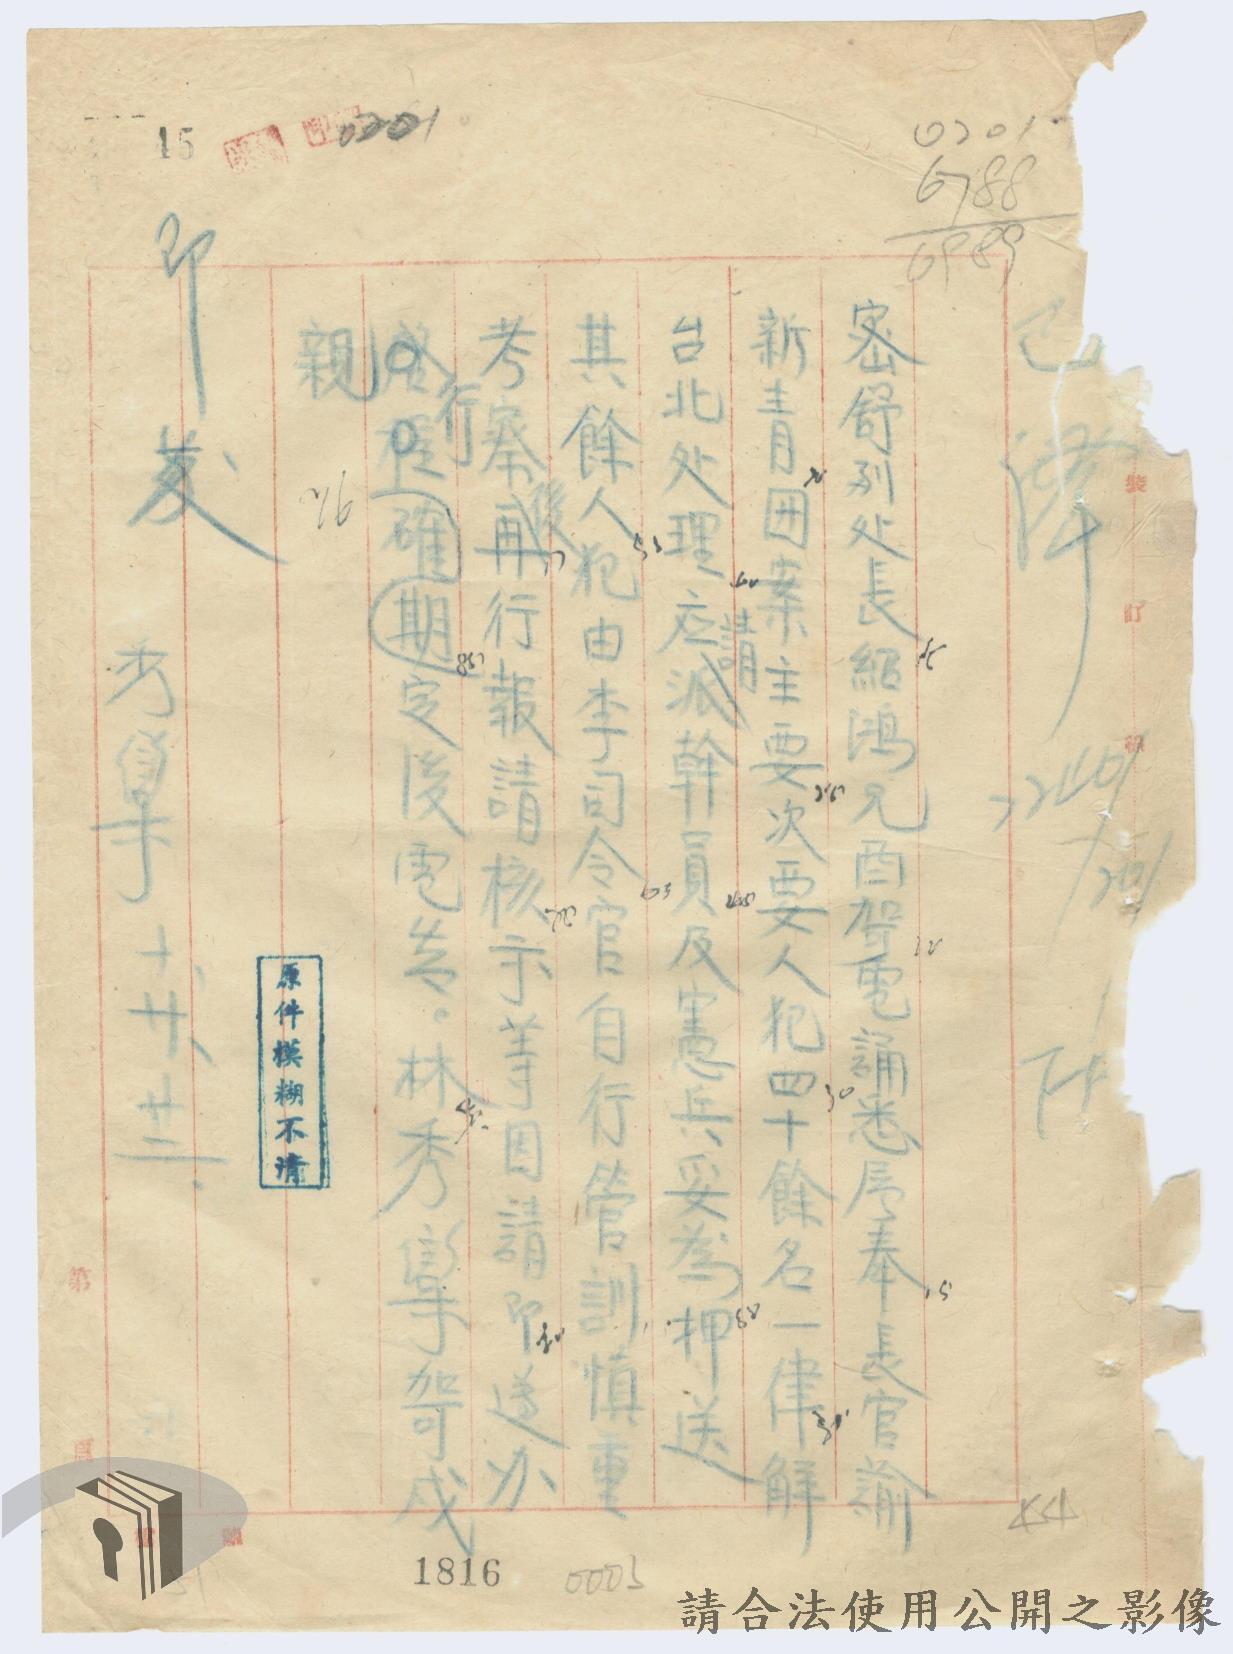 15
0201
0201
6788
6989
已譯
裝
訂
線
密舒列处長紹鴻兄酉哿電誦悉原奉長官諭
新青囝案主要次要人犯四十餘名一律解
台北处理应請派幹員及憲兵妥為押送
其餘人犯由李司令官自行管訓慎重
考察後再行報請核示等因請即遵办
啓程確期定後電告。林秀欒哿戌
行
親
96
即發
秀欒
十廿
原件模糊不清
第
頁
44
1816
0003
請合法使用公開之影像